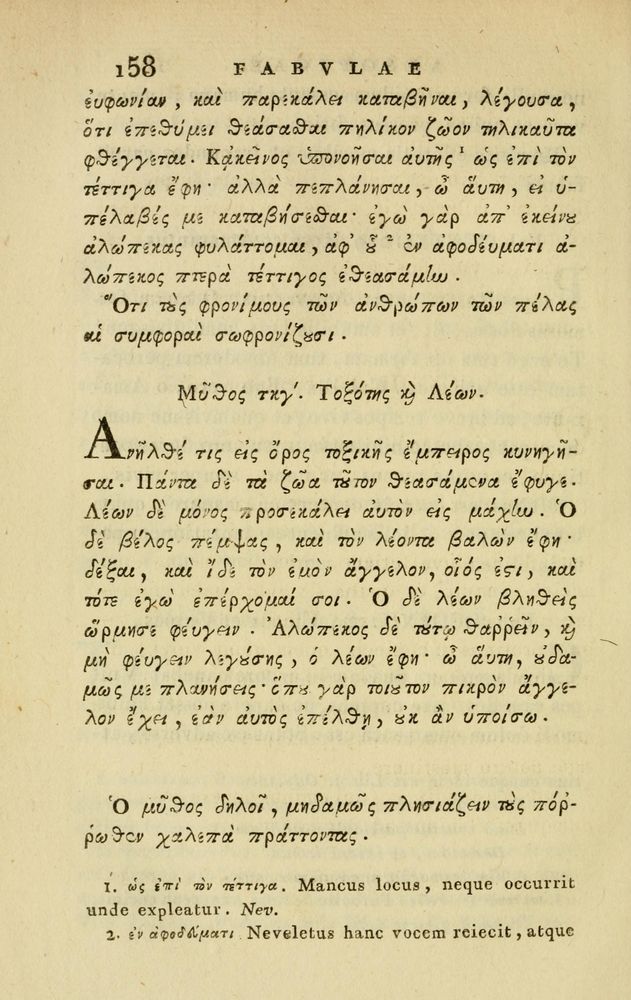 158 FABVLAE
εὐφωνίαν, καὶ παρεκάλει καταβῆναι, λέγουσα,
ὅτι ἐπεθύμει θεάσαθαι πηλίκον ζῶον τηλικαῦτα
φθέγγεται. Κἀκεῖνος ὑπονοῆσαι αὐτῆς ¹ ὡς ἐπὶ τὸν
τέττιγα ἔφη· ἀλλὰ πεπλάνησαι, ὦ αὕτη, εἰ ὑ-
πέλαβές με καταβήσεσθαι· ἐγὼ γὰρ ἀπ' ἐκείνου
ἀλώπεκας φυλάττομαι, ἀφ' οὗ ² ἐν ἀφοδεύματι ἀ-
λώπεκος πτερὰ τέττιγος ἐθεασάμην.
Ὅτι τοὺς φρονίμους τῶν ἀνθρώπων τῶν πέλας
αἱ συμφοραὶ σωφρονίζουσι.
Μῦθος τκγ'. Τοξότης καὶ Λέων.
Ἀνῆλθέ τις εἰς ὄρος τοξικῆς ἔμπειρος κυνηγῆ-
σαι. Πάντα δὲ τὰ ζῶα τοῦτον θεασάμενα ἔφυγε.
Λέων δὲ μόνος προσεκάλει αὐτὸν εἰς μάχην. Ὁ
δὲ βέλος πέμψας, καὶ τὸν λέοντα βαλὼν ἔφη·
δέξαι, καὶ ἴδε τὸν ἐμὸν ἄγγελον, οἷός ἐστι, καὶ
τότε ἐγὼ ἐπέρχομαί σοι. Ὁ δὲ λέων βληθεὶς
ὥρμησε φεύγειν. Ἀλώπεκος δὲ τούτῳ θαῤῥεῖν, καὶ
μὴ φεύγειν λεγούσης, ὁ λέων ἔφη· ὦ αὕτη, οὐδα-
μῶς με πλανήσεις· ὅπου γὰρ τοιοῦτον πικρὸν ἄγγε-
λον ἔχει, ἐὰν αὐτὸς ἐπέλθῃ, οὐκ ἂν ὑποίσω.
Ὁ μῦθος δηλοῖ, μηδαμῶς πλησιάζειν τοὺς πόῤ-
ῥωθεν χαλεπὰ πράττοντας.
1. ὡς ἐπὶ τὸν τέττιγα. Mancus locus, neque occurrit
unde expleatur. Nev.
2. ἐν ἀφοδεύματι Neveletus hanc vocem reiecit, atque